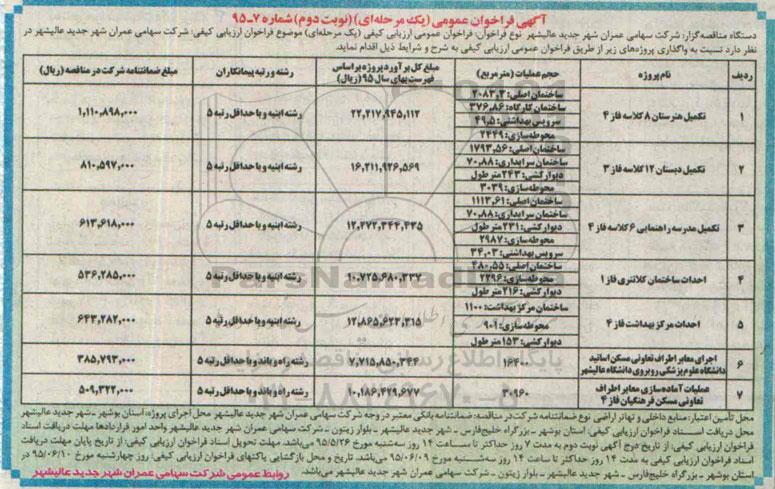 آگهی فراخوان عمومی (یک مرحله‌ای) (نوبت دوم) شماره ۷-۹۵
دستگاه مناقصه‌گزار: شرکت سهامی عمران شهر جدید عالیشهر نوع فراخوان: فراخوان عمومی ارزیابی کیفی (یک مرحله‌ای) موضوع فراخوان ارزیابی کیفی: شرکت سهامی عمران شهر جدید عالیشهر در
نظر دارد نسبت به واگذاری پروژه‌های زیر از طریق فراخوان عمومی ارزیابی کیفی به شرح و شرایط ذیل اقدام نماید.
ردیف نام پروژه حجم عملیات (مترمربع) مبلغ کل برآورد پروژه بر اساس فهرست‌بهای سال ۹۵ (ریال) رشته و رتبه پیمانکاران مبلغ ضمانتنامه شرکت در مناقصه (ریال)
۱ تکمیل هنرستان ۸ کلاسه فاز ۴ ساختمان اصلی: ۲۰۸۳,۳ ۲۲,۲۱۷,۹۴۵,۱۱۲ رشته ابنیه و با حداقل رتبه ۵ ۱,۱۱۰,۸۹۸,۰۰۰
ساختمان کارگاه: ۳۷۶,۸۶
سرویس بهداشتی: ۴۹,۵
محوطه‌سازی: ۲۴۴۹
۲ تکمیل دبستان ۱۲ کلاسه فاز ۳ ساختمان اصلی: ۱۷۹۳,۵۶ ۱۶,۲۱۱,۹۲۶,۵۶۹ رشته ابنیه و با حداقل رتبه ۵ ۸۱۰,۵۹۷,۰۰۰
ساختمان سرایداری: ۷۰,۸۸
دیوارکشی: ۲۴۳ متر طول
محوطه‌سازی: ۳۰۳۹
۳ تکمیل مدرسه راهنمایی ۶ کلاسه فاز ۴ ساختمان اصلی: ۱۱۱۳,۶۱ ۱۲,۲۷۲,۳۴۴,۴۳۵ رشته ابنیه و با حداقل رتبه ۵ ۶۱۳,۶۱۸,۰۰۰
ساختمان سرایداری: ۷۰,۸۸
دیوارکشی: ۲۳۱ متر طول
محوطه‌سازی: ۲۹۸۷
سرویس بهداشتی: ۳۴,۰۳
۴ احداث ساختمان کلانتری فاز ۱ ساختمان اصلی: ۴۸۰,۵۵ ۱۰,۷۲۵,۶۸۰,۲۳۷ رشته ابنیه و با حداقل رتبه ۵ ۵۳۶,۲۸۵,۰۰۰
محوطه‌سازی: ۲۲۹۶
دیوارکشی: ۲۱۶ متر طول
۵ احداث مرکز بهداشت فاز ۴ ساختمان مرکز بهداشت: ۱۱۰۰ ۱۲,۸۶۵,۶۲۳,۳۱۵ رشته ابنیه و با حداقل رتبه ۵ ۶۴۳,۲۸۲,۰۰۰
محوطه‌سازی: ۹۰۱
دیوارکشی: ۱۵۳ متر طول
۶ اجرای معابر اطراف تعاونی مسکن اساتید دانشگاه علوم پزشکی روبروی دانشگاه عالیشهر ۱۶۴۰۰ ۷,۷۱۵,۸۵۰,۳۴۴ رشته راه و باند و با حداقل رتبه ۵ ۳۸۵,۷۹۳,۰۰۰
۷ عملیات آماده‌سازی معابر اطراف تعاونی مسکن فرهنگیان فاز ۴ ۲۰۹۶۰ ۱۰,۱۸۶,۴۲۹,۶۷۷ رشته راه و باند و با حداقل رتبه ۵ ۵۰۹,۳۲۲,۰۰۰
محل تأمین اعتبار: منابع داخلی و تهاتر اراضی نوع ضمانتنامه شرکت در مناقصه: ضمانتنامه بانکی معتبر در وجه شرکت سهامی عمران شهر جدید عالیشهر محل اجرای پروژه: استان بوشهر ـ شهر جدید عالیشهر
محل دریافت اسناد فراخوان ارزیابی کیفی: استان بوشهر ـ بزرگراه خلیج‌فارس ـ شهر جدید عالیشهر ـ بلوار زیتون ـ شرکت سهامی عمران شهر جدید عالیشهر واحد امور قراردادها مهلت دریافت اسناد
فراخوان ارزیابی کیفی: از تاریخ درج آگهی نوبت دوم به مدت ۷ روز حداکثر تا ساعت ۱۴ روز سه‌شنبه مورخ ۹۵/۵/۲۶ می‌باشد. مهلت تحویل اسناد فراخوان ارزیابی کیفی: از تاریخ پایان مهلت دریافت
اسناد فراخوان ارزیابی کیفی به مدت ۱۴ روز حداکثر تا ساعت ۱۴ روز سه‌شنبه مورخ ۹۵/۰۶/۰۹ می‌باشد. تاریخ و محل بازگشایی پاکتهای فراخوان ارزیابی کیفی: روز چهارشنبه مورخ ۹۵/۰۶/۱۰ در
استان بوشهر ـ بزرگراه خلیج‌فارس ـ شهر جدید عالیشهر ـ بلوار زیتون ـ شرکت سهامی عمران شهر جدید عالیشهر می‌باشد. روابط عمومی شرکت سهامی عمران شهر جدید عالیشهر